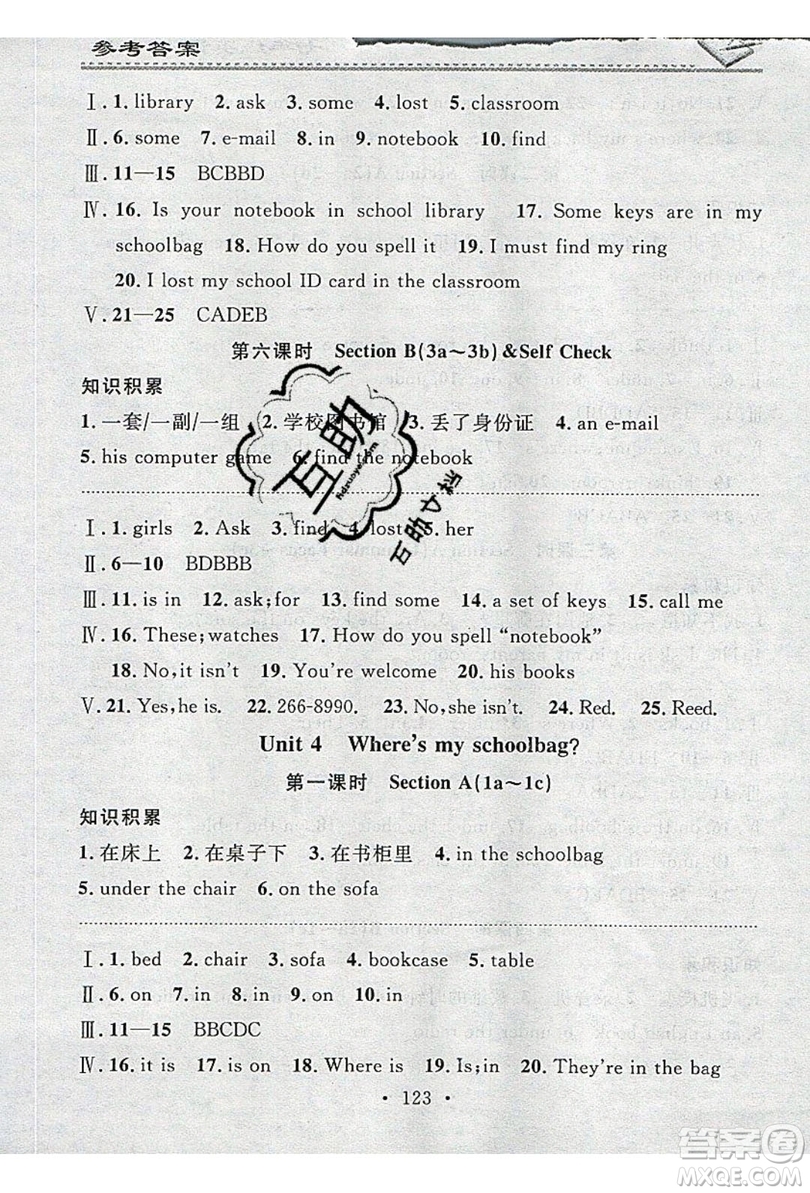 参考答案
Ⅰ. 1. library 2. ask 3. some 4. lost 5. classroom
Ⅱ. 6. some 7. e-mail 8. in 9. notebook 10. find
Ⅲ. 11—15 BCBBD
Ⅳ. 16. Is your notebook in school library 17. Some keys are in my
schoolbag 18. How do you spell it 19. I must find my ring
20. I lost my school ID card in the classroom
Ⅴ. 21—25 CADEB
第六课时 Section B(3a~3b)&Self Check
知识积累
1. 一套/一副/一组 2. 学校图书馆 3. 丢了身份证 4. an e-mail
5. his computer game 6. find the notebook
Ⅰ. 1. girls 2. Ask 3. find 4. lost 5. her
Ⅱ. 6—10 BDBBB
Ⅲ. 11. is in 12. ask;for 13. find some 14. a set of keys 15. call me
Ⅳ. 16. These;watches 17. How do you spell “notebook”
18. No,it isn't 19. You're welcome 20. his books
Ⅴ. 21. Yes,he is. 22. 266-8990. 23. No,she isn't. 24. Red. 25. Reed.
Unit 4 Where's my schoolbag?
第一课时 Section A(1a~1c)
知识积累
1. 在床上 2. 在桌子下 3. 在书柜里 4. in the schoolbag
5. under the chair 6. on the sofa
Ⅰ. 1. bed 2. chair 3. sofa 4. bookcase 5. table
Ⅱ. 6. on 7. in 8. on 9. on 10. in
Ⅲ. 11—15 BBCDC
Ⅳ. 16. it is 17. is on 18. Where is 19. Is;in 20. They're in the bag
· 123 ·
互助
hdzuoye.com
互助文档
答案圈
MXQE.COM